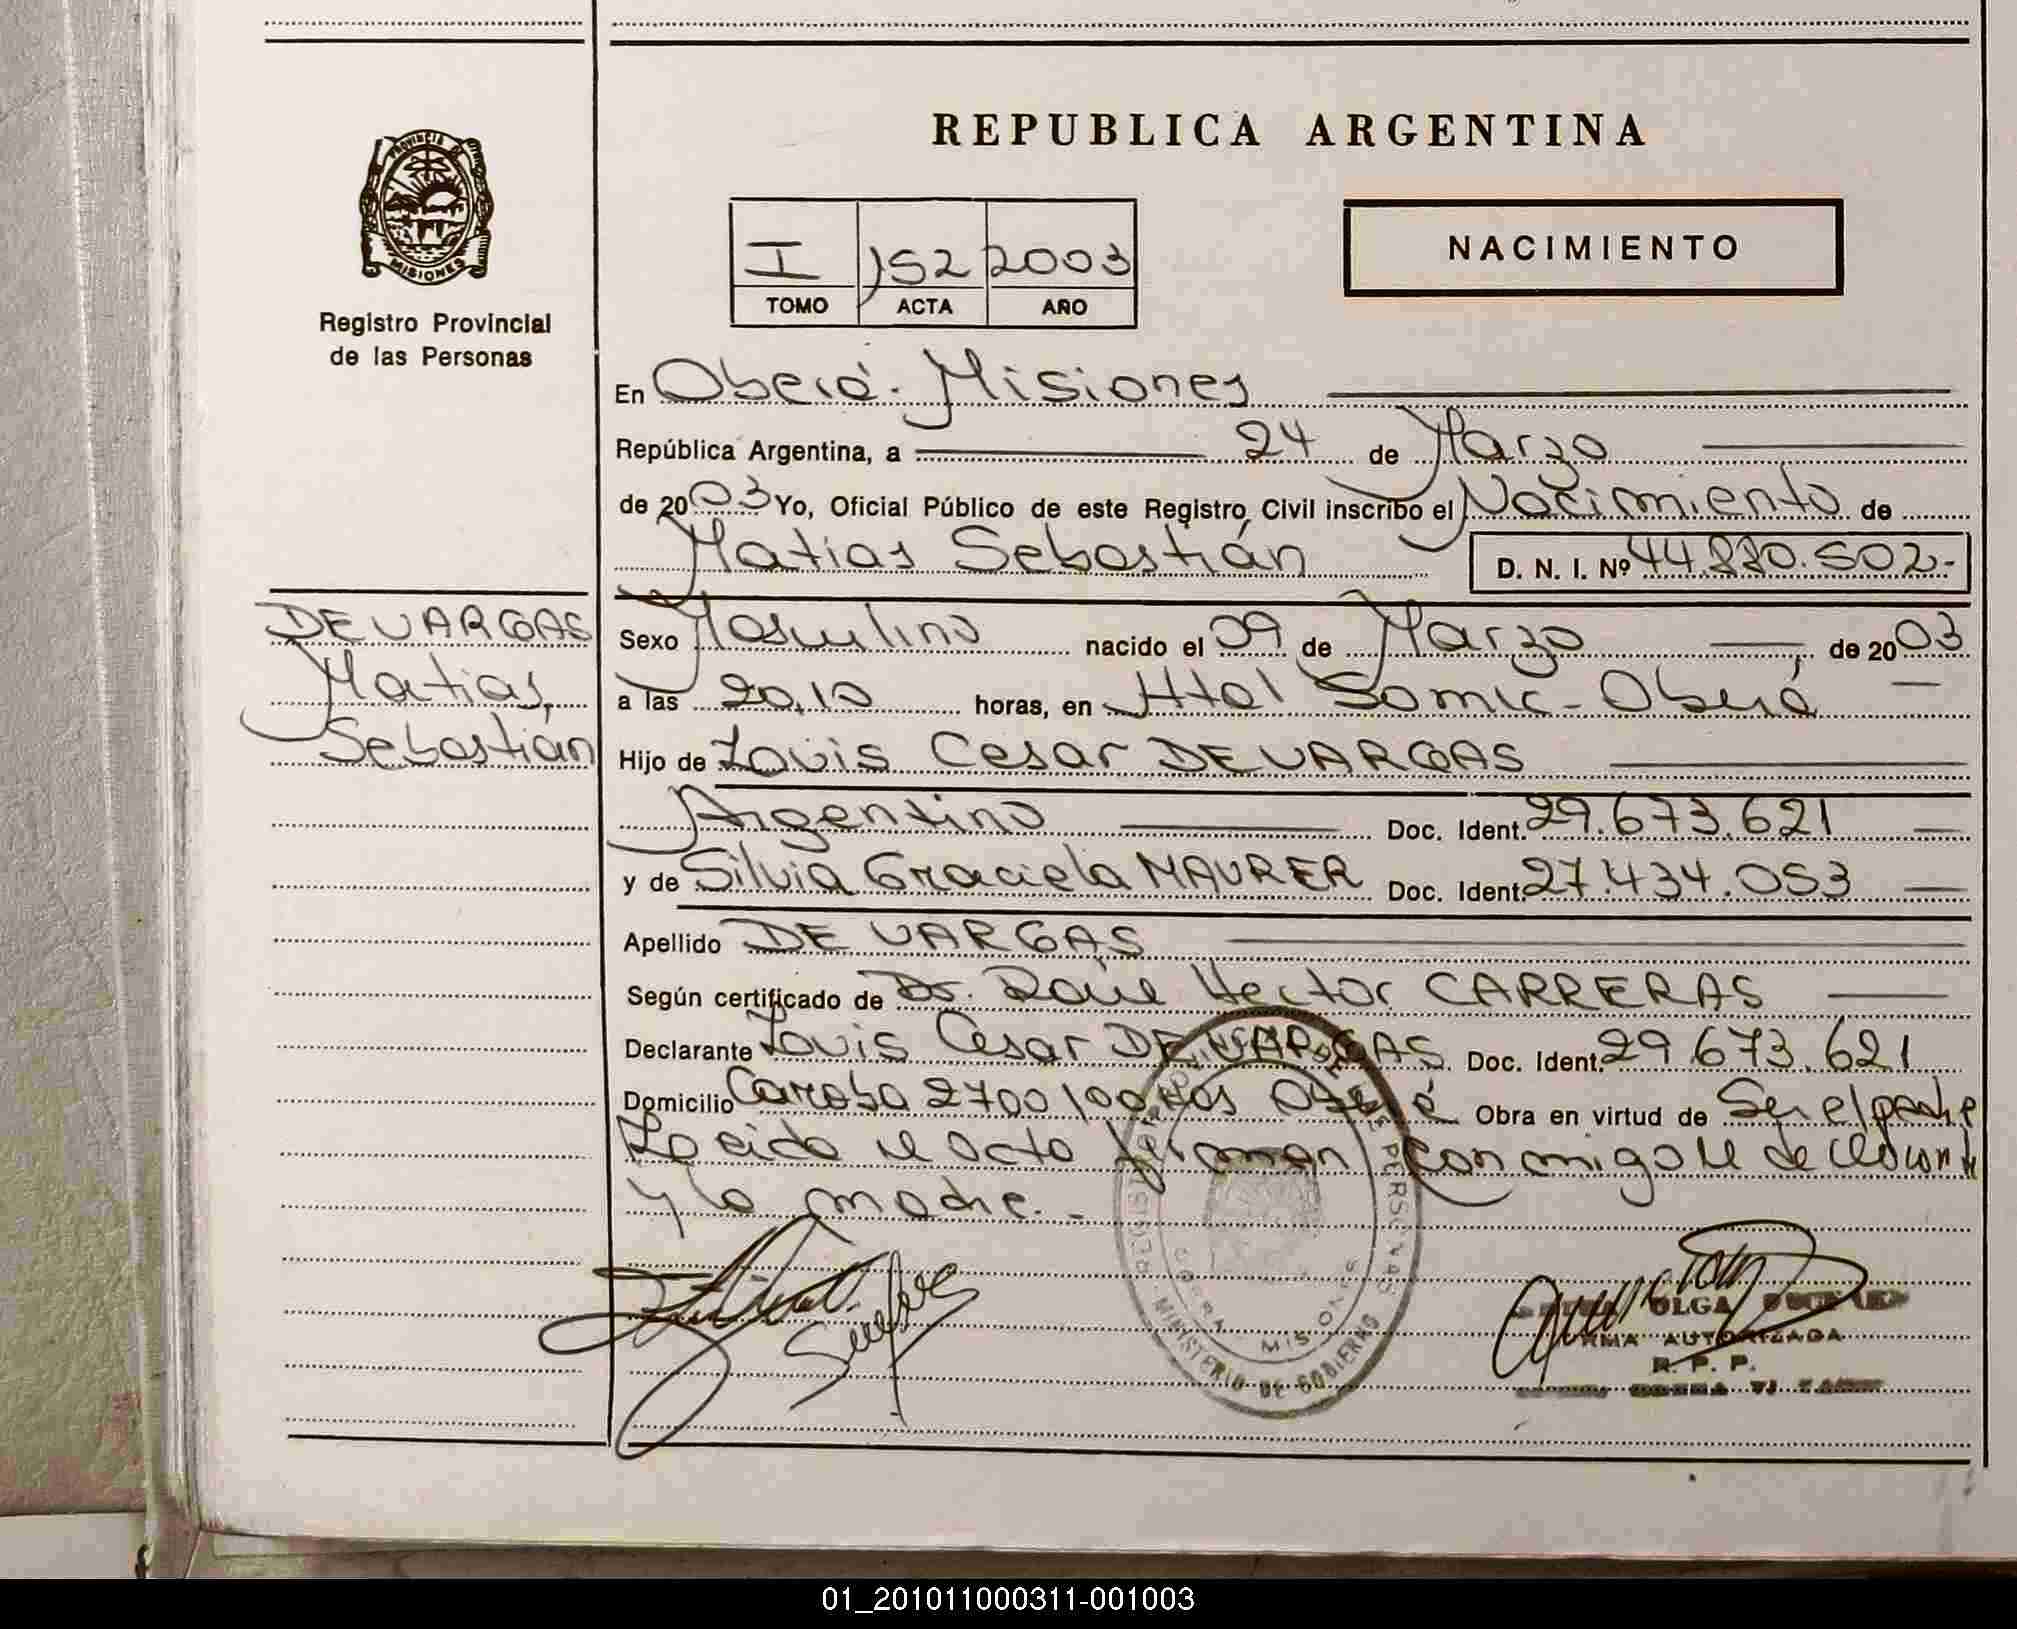 PROVINCIA DE
MISIONES
Registro Provincial
de las Personas
REPUBLICA ARGENTINA
I 152 2003
TOMO ACTA AÑO
NACIMIENTO
En Oberá - Misiones
República Argentina, a 24 de Marzo
de 2003 Yo, Oficial Público de este Registro Civil inscribo el Nacimiento de
Matias Sebastián D. N. I. Nº 44.880.502.-
DE VARGAS
Matias,
Sebastián
Sexo Masculino nacido el 09 de Marzo de 2003
a las 20,10 horas, en Htal Samic - Oberá
Hijo de Louis Cesar DE VARGAS
Argentino Doc. Ident. 29.673.621
y de Silvia Graciela MAURER Doc. Ident. 27.434.053
Apellido DE VARGAS
Según certificado de Dr. Raúl Hector CARRERAS
Declarante Louis Cesar DE VARGAS Doc. Ident. 29.673.621
Domicilio 2700 Oberá Obra en virtud de Ser el padre
Leida el acta firman conmigo el declarante
y la madre.-
MINISTERIO DE GOBIERNO
MISIONES
OLGA
FIRMA AUTORIZADA
R. P. P.
01_201011000311-001003